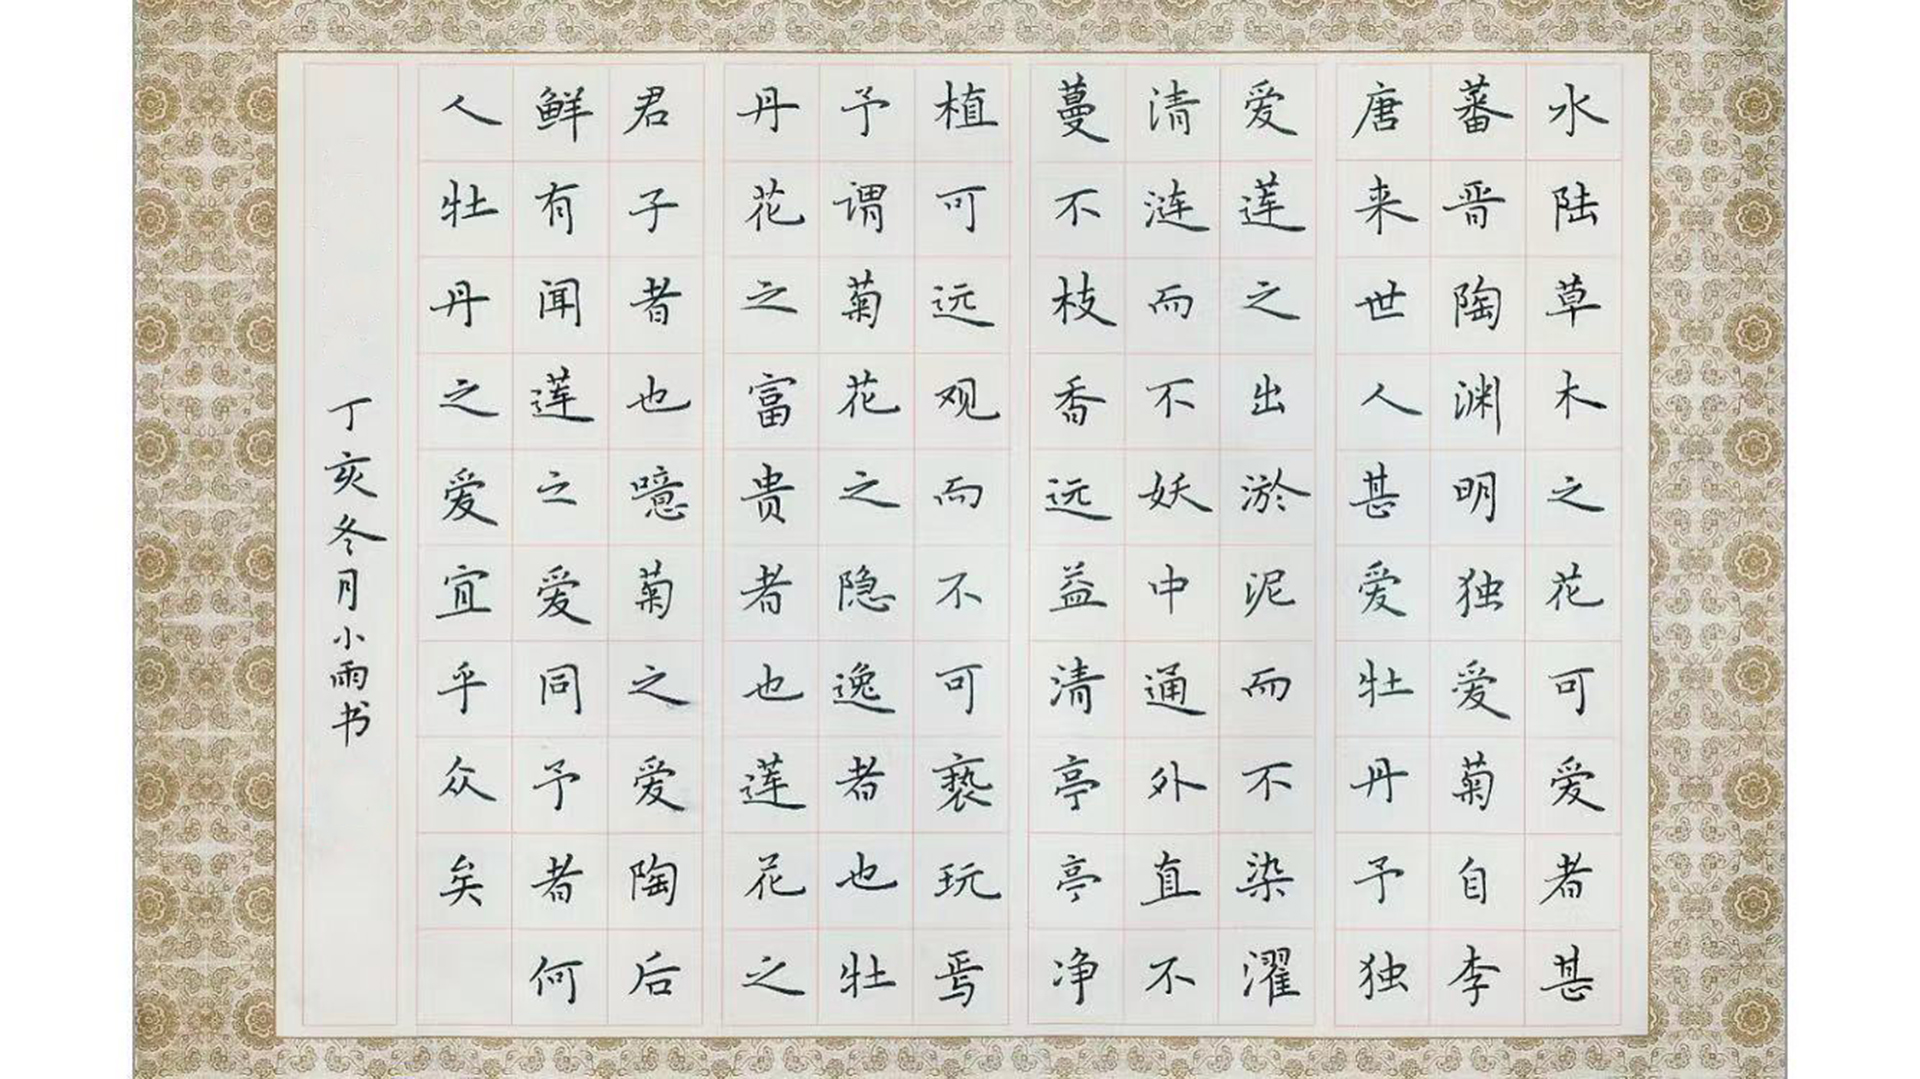 水陆草木之花可爱者甚
蕃晋陶渊明独爱菊自李
唐来世人甚爱牡丹予独
爱莲之出淤泥而不染濯
清涟而不妖中通外直不
蔓不枝香远益清亭亭净
植可远观而不可亵玩焉
予谓菊花之隐逸者也牡
丹花之富贵者也莲花之
君子者也噫菊之爱陶后
鲜有闻莲之爱同予者何
人牡丹之爱宜乎众矣
丁亥冬月小雨书